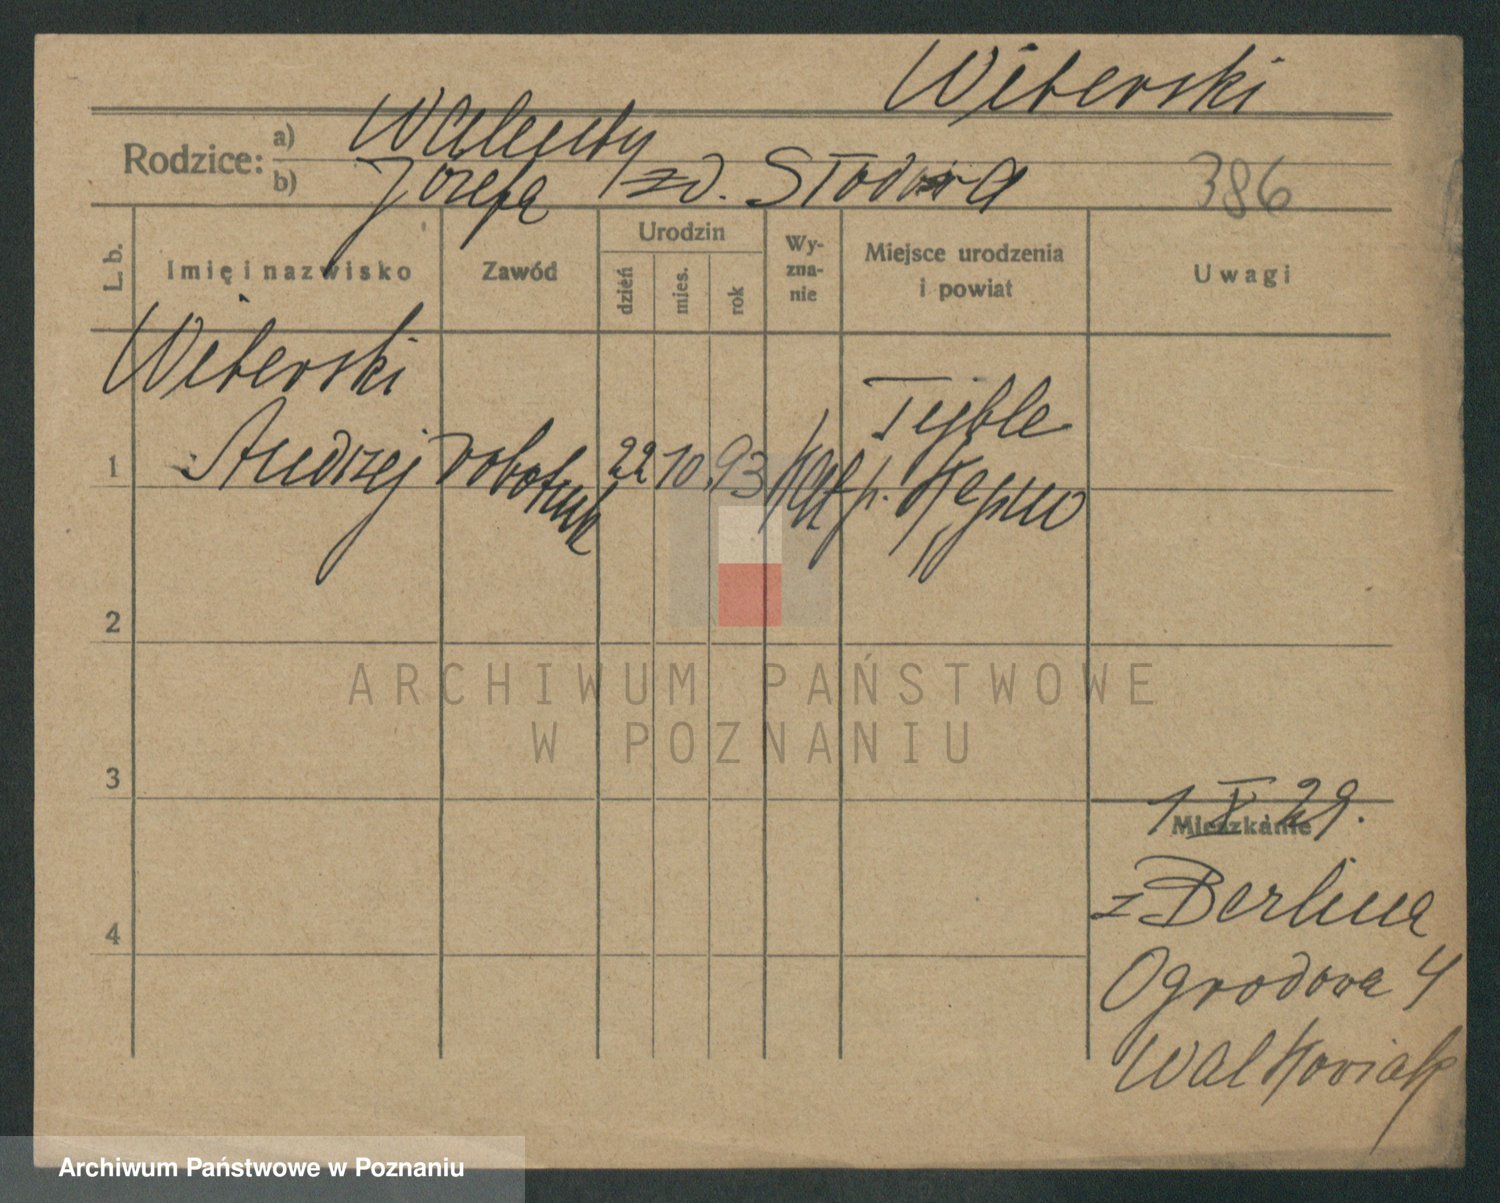 Weberski
Rodzice:
a) Walenty
b) Józefa zd.
386
L. b.
Imię i nazwisko
Zawód
Urodzin
dzień
mies.
rok
Wy-
zna-
nie
Miejsce urodzenia
i powiat
Uwagi
Weberski
1 Andrzej robotnik 22 10. 93 kat
p. Kępno
2
3
4
Mieszkanie
1 X 29.
z Berlina
Ogrodowa 4
Walkowiak
ARCHIWUM PAŃSTWOWE
W POZNANIU
Archiwum Państwowe w Poznaniu